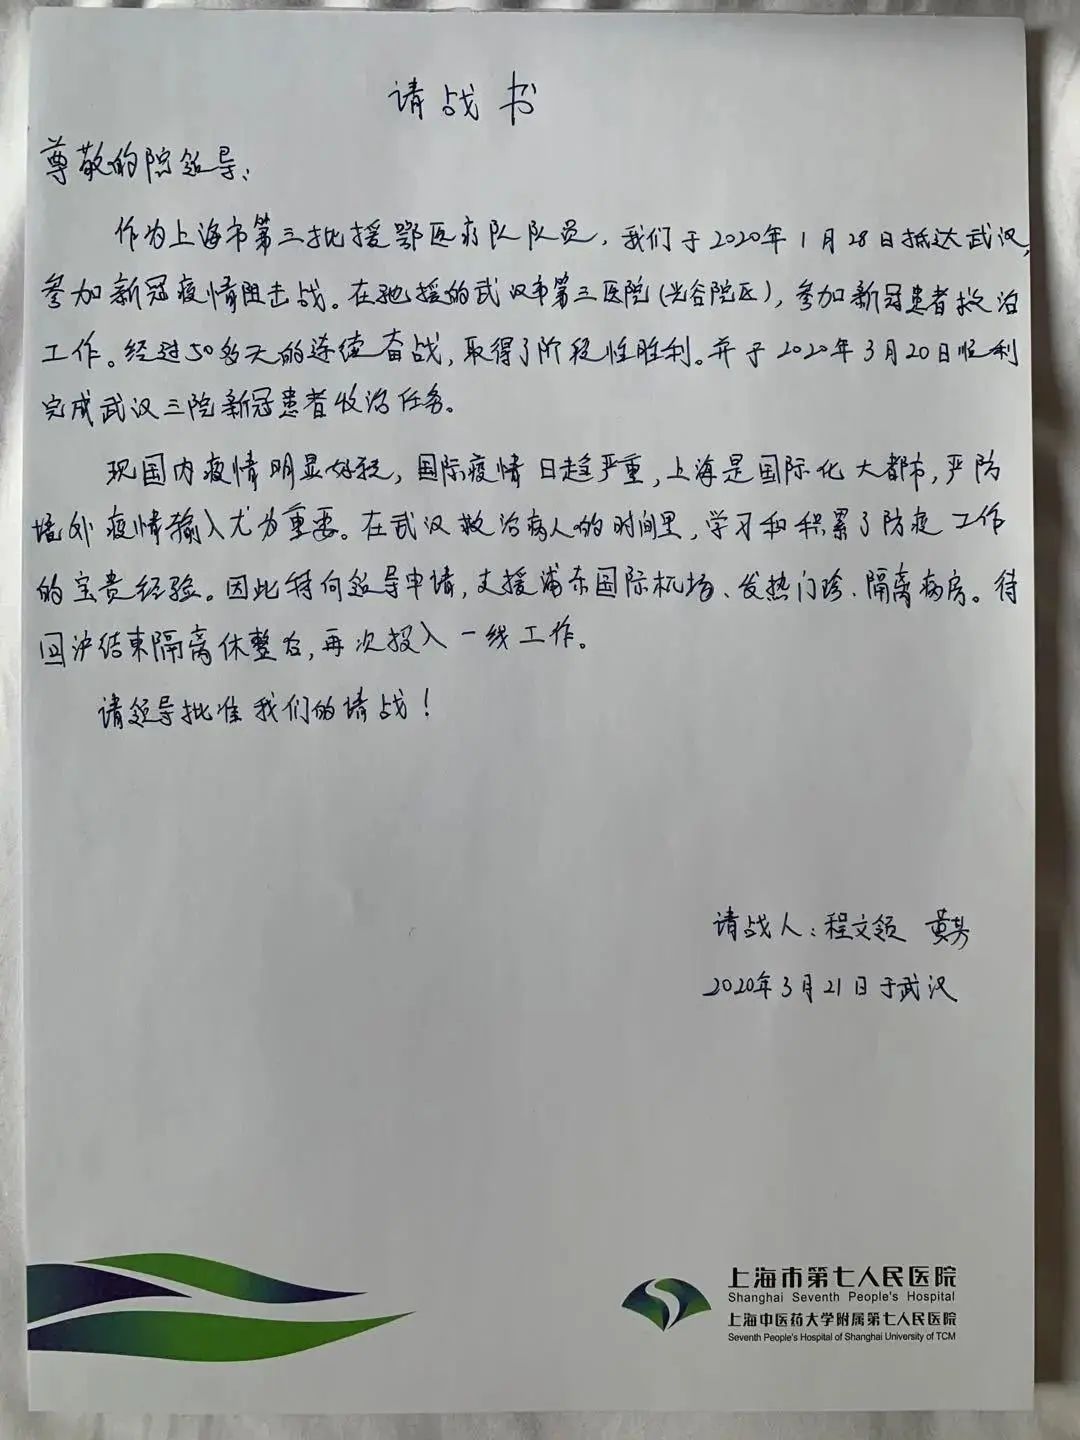 请战书
尊敬的院领导：
作为上海市第三批援鄂医疗队队员，我们于2020年1月28日抵达武汉，
参加新冠疫情阻击战。在驰援的武汉市第三医院(光谷院区)，参加新冠患者救治
工作。经过50多天的连续奋战，取得了阶段性胜利。并于2020年3月20日顺利
完成武汉三院新冠患者收治任务。
现国内疫情明显好转，国际疫情日趋严重，上海是国际化大都市，严防
境外疫情输入尤为重要。在武汉救治病人的时间里，学习和积累了防疫工作
的宝贵经验。因此特向领导申请，支援浦东国际机场、发热门诊、隔离病房。待
回沪结束隔离休整后，再次投入一线工作。
请领导批准我们的请战！
请战人：程文领 黄芳
2020年3月21日于武汉
上海市第七人民医院
Shanghai Seventh People's Hospital
上海中医药大学附属第七人民医院
Seventh People's Hospital of Shanghai University of TCM